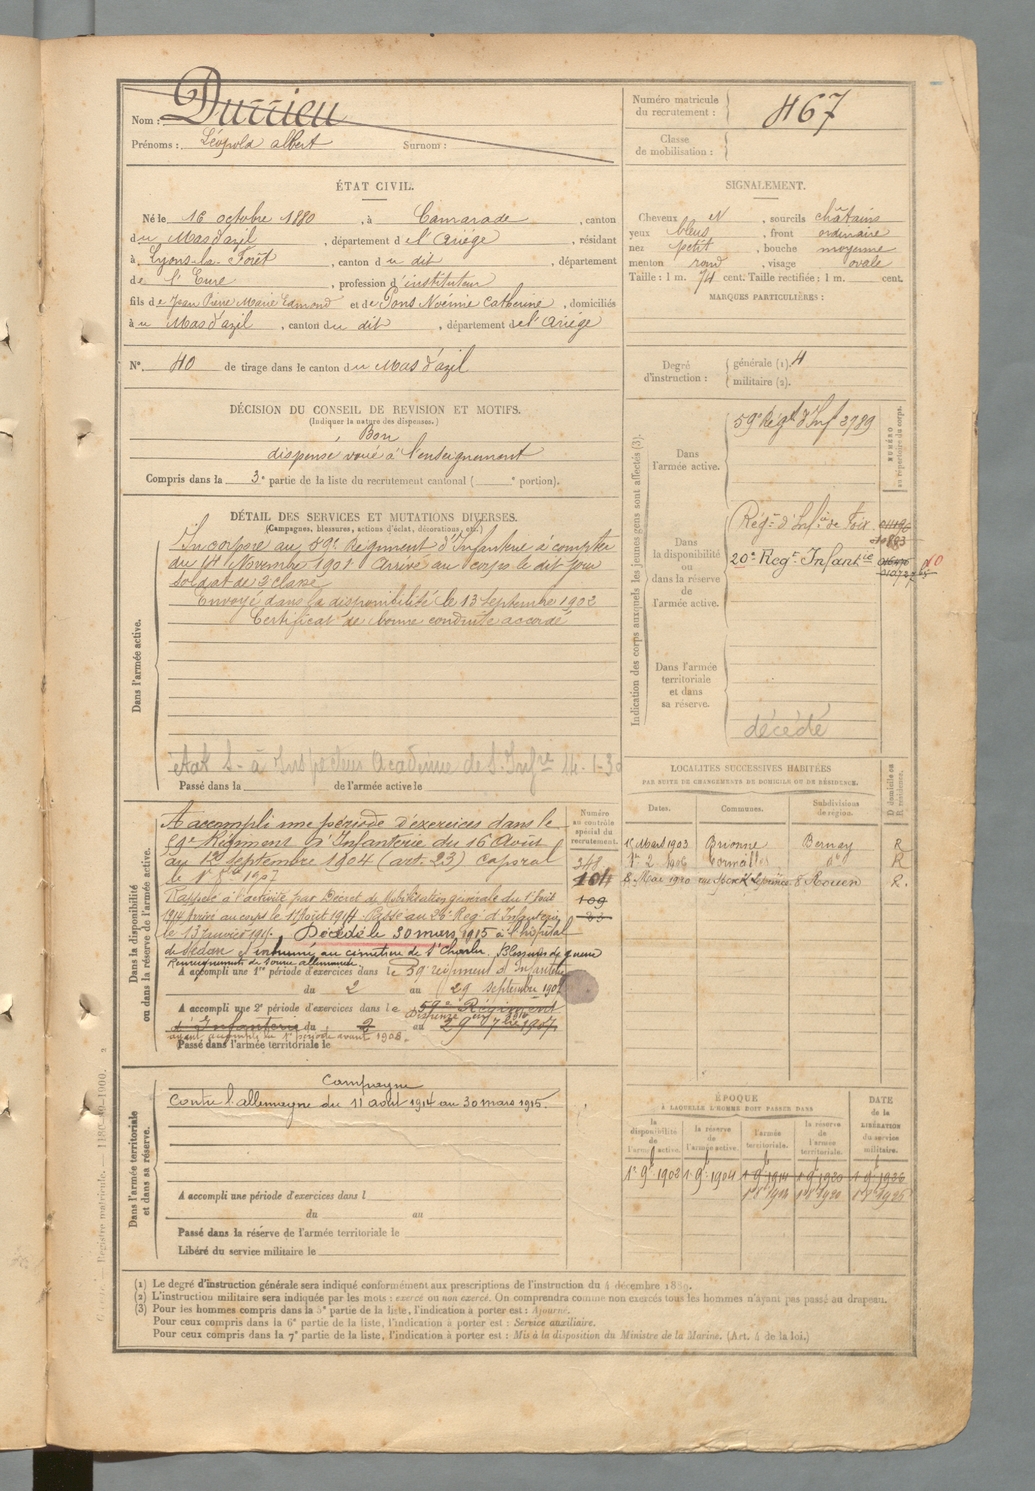 Nom : Durrieu
Prénoms : Léopold albert Surnom :
Numéro matricule du recrutement : 467
Classe de mobilisation :
ÉTAT CIVIL.
Né le 16 octobre 1880, à Camarade, canton
du Mas d'azil, département de l'Ariége, résidant
à Lyons-la-Forêt, canton du dit, département
de l'Eure, profession d'instituteur
fils de Jean Pierre Marie Edmond et de Pons Noémie Catherine, domiciliés
à u Mas d'azil, canton du dit, département de l'Ariége
N° 40 de tirage dans le canton du Mas d'azil
SIGNALEMENT.
Cheveux N, sourcils châtains
yeux bleus, front ordinaire
nez petit, bouche moyenne
menton rond, visage ovale
Taille : 1 m. 74 cent. Taille rectifiée : 1 m. cent.
MARQUES PARTICULIÈRES :
Degré d'instruction : générale (1). 4
militaire (2).
DÉCISION DU CONSEIL DE REVISION ET MOTIFS.
(Indiquer la nature des dispenses.)
Bon
dispense voué à l'enseignement
Compris dans la 3e partie de la liste du recrutement cantonal ( e portion).
DÉTAIL DES SERVICES ET MUTATIONS DIVERSES.
(Campagnes, blessures, actions d'éclat, décorations, etc.)
Dans l'armée active.
Incorporé au 59e Régiment d'Infanterie à compter
du 14 Novembre 1901 Arrivé au corps le dit jour
soldat de 2e classe
Envoyé dans la disponibilité le 13 septembre 1902
Certificat de bonne conduite accordé
14-1-30
Passé dans la de l'armée active le
Indication des corps auxquels les jeunes gens sont affectés (3).
NUMÉRO au répertoire du corps.
Dans l'armée active.
59e Régt d'Infie 3789
Dans la disponibilité ou dans la réserve de l'armée active.
Régt d'Infie de Foix
20e Regt Infantie
Dans l'armée territoriale et dans sa réserve.
décédé
LOCALITÉS SUCCESSIVES HABITÉES
PAR SUITE DE CHANGEMENTS DE DOMICILE OU DE RÉSIDENCE.
Dates. Communes. Subdivisions de région. D domicile ou R résidence.
Mars 1903 Brionne Bernay R
2 1906 Cormeilles do R
8 Mai 1910 Rouen R.
Dans la disponibilité ou dans la réserve de l'armée active.
Numéro au contrôle spécial du recrutement.
A accompli une période d'exercices dans le
59e Régiment d'Infanterie du 16 Août
au 12 septembre 1904 (art. 23) Caporal
le 1er 1907
Rappelé à l'activité par Décret de Mobilisation générale du 1er Août
1914 Arrivé au corps le 11 Août 1914. Passé au 20e Reg. d'Infanterie
le 13 Janvier 1915. Décédé le 30 mars 1915 à l'hôpital
de Sedan et inhumé au cimetière de St Charles. Blessures de guerre
Renseignements de source allemande.
A accompli une 1re période d'exercices dans le 59e régiment d'Infanterie
du 2 au 29 septembre 1907
A accompli une 2e période d'exercices dans le 59e Régiment
d'Infanterie du 2 au 29 7bre 1907.
Passé dans l'armée territoriale le
Dans l'armée territoriale et dans sa réserve.
Campagne
Contre l'allemagne du 11 août 1914 au 30 mars 1915.
A accompli une période d'exercices dans l
du au
Passé dans la réserve de l'armée territoriale le
Libéré du service militaire le
ÉPOQUE
A LAQUELLE L'HOMME DOIT PASSER DANS
DATE de la LIBÉRATION du service militaire.
la disponibilité de l'armée active. la réserve de l'armée active. l'armée territoriale. la réserve de l'armée territoriale.
1er 9bre 1902 1er 9bre 1904 1er 9bre 1914 1er 9bre 1920
(1) Le degré d'instruction générale sera indiqué conformément aux prescriptions de l'instruction du 4 décembre 1889.
(2) L'instruction militaire sera indiquée par les mots : exercé ou non exercé. On comprendra comme non exercés tous les hommes n'ayant pas passé au drapeau.
(3) Pour les hommes compris dans la 5e partie de la liste, l'indication à porter est : Ajourné.
Pour ceux compris dans la 6e partie de la liste, l'indication à porter est : Service auxiliaire.
Pour ceux compris dans la 7e partie de la liste, l'indication à porter est : Mis à la disposition du Ministre de la Marine. (Art. 4 de la loi.)